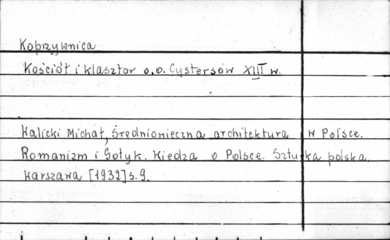 Koprzywnica
Kościół i klasztor o.o. Cystersów XIII w.
Walicki Michał, Średniowieczna architektura w Polsce.
Romanizm i Gotyk. Wiedza o Polsce. Sztuka polska.
Warszawa [1932] s. 9.